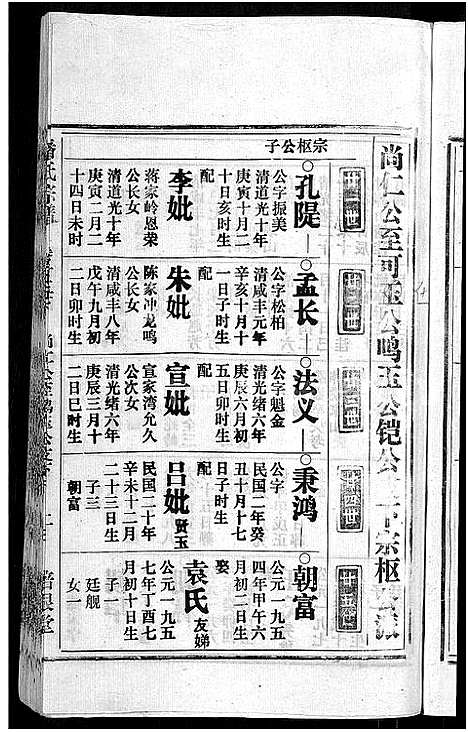 尚仁公至可玉公鸣玉公铠公
宗枢公子
孔隄
公字振美
清道光十年
庚寅十月二
十日亥时生
配
李妣
蒋家岭恩荣
公长女
清道光十年
庚寅二月二
十四日未时
孟长
公字松柏
清咸丰元年
辛亥十月十
一日子时生
配
朱妣
陈家冲龙鸣
公长女
清咸丰八年
戊午九月初
二日卯时生
法义
公字魁金
清光绪六年
庚辰六月初
五日卯时生
配
宣妣
宣家湾允久
公次女
清光绪六年
庚辰三月十
二日巳时生
秉鸿
公字
民国二年癸
丑十月十七
日子时生
配
吕妣 贤玉
民国二十年
辛未十二月
二十三日生
子三
朝富
朝富
公元一九五
四年甲午六
月初二日生
娶
袁氏 友娣
公元一九五
七年丁酉七
月初十日生
子一
廷舰
女一